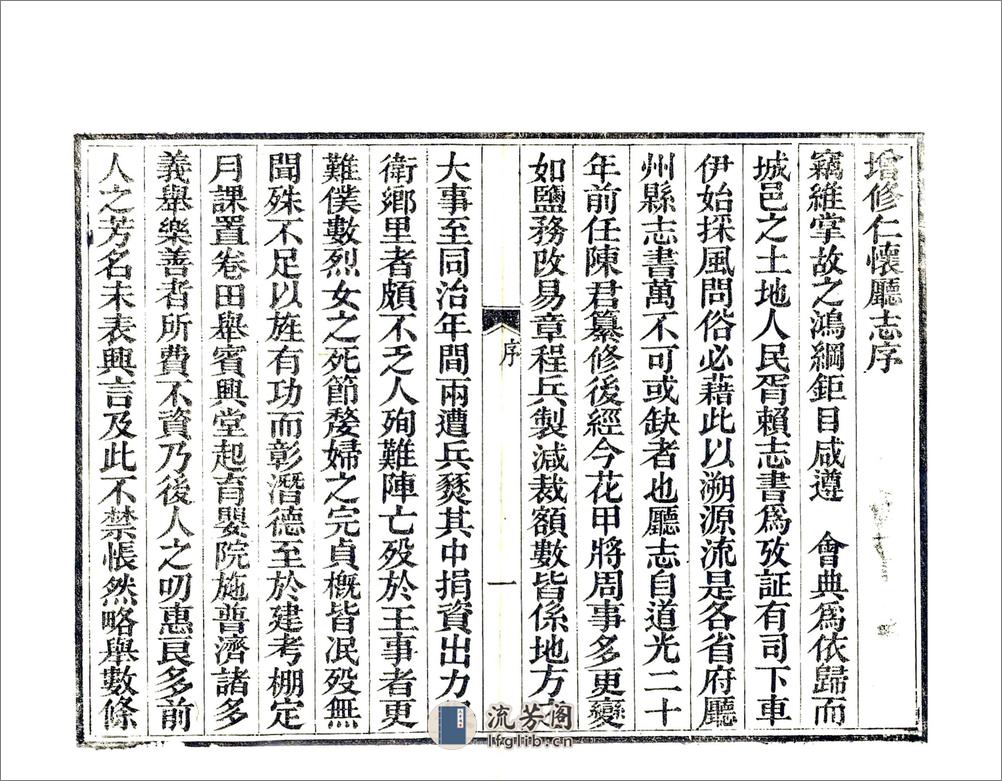 增修仁懷廳志序
竊維掌故之鴻綱鉅目咸遵　會典爲依歸而
城邑之土地人民胥賴志書爲攷証有司下車
伊始採風問俗必藉此以溯源流是各省府廳
州縣志書萬不可或缺者也廳志自道光二十
年前任陳君纂修後經今花甲將周事多更變
如鹽務改易章程兵製減裁額數皆係地方
序
一
大事至同治年間兩遭兵燹其中捐資出力
衛鄉里者頗不乏人殉難陣亡歿於王事者更
難僕數烈女之死節嫠婦之完貞槪皆泯歿無
聞殊不足以旌有功而彰潛德至於建考棚定
月課置卷田舉賓興堂起育嬰院施普濟諸多
義舉樂善者所費不資乃後人之叨惠良多前
人之芳名未表興言及此不禁悵然略舉數條
流芳閣
lfglib.cn